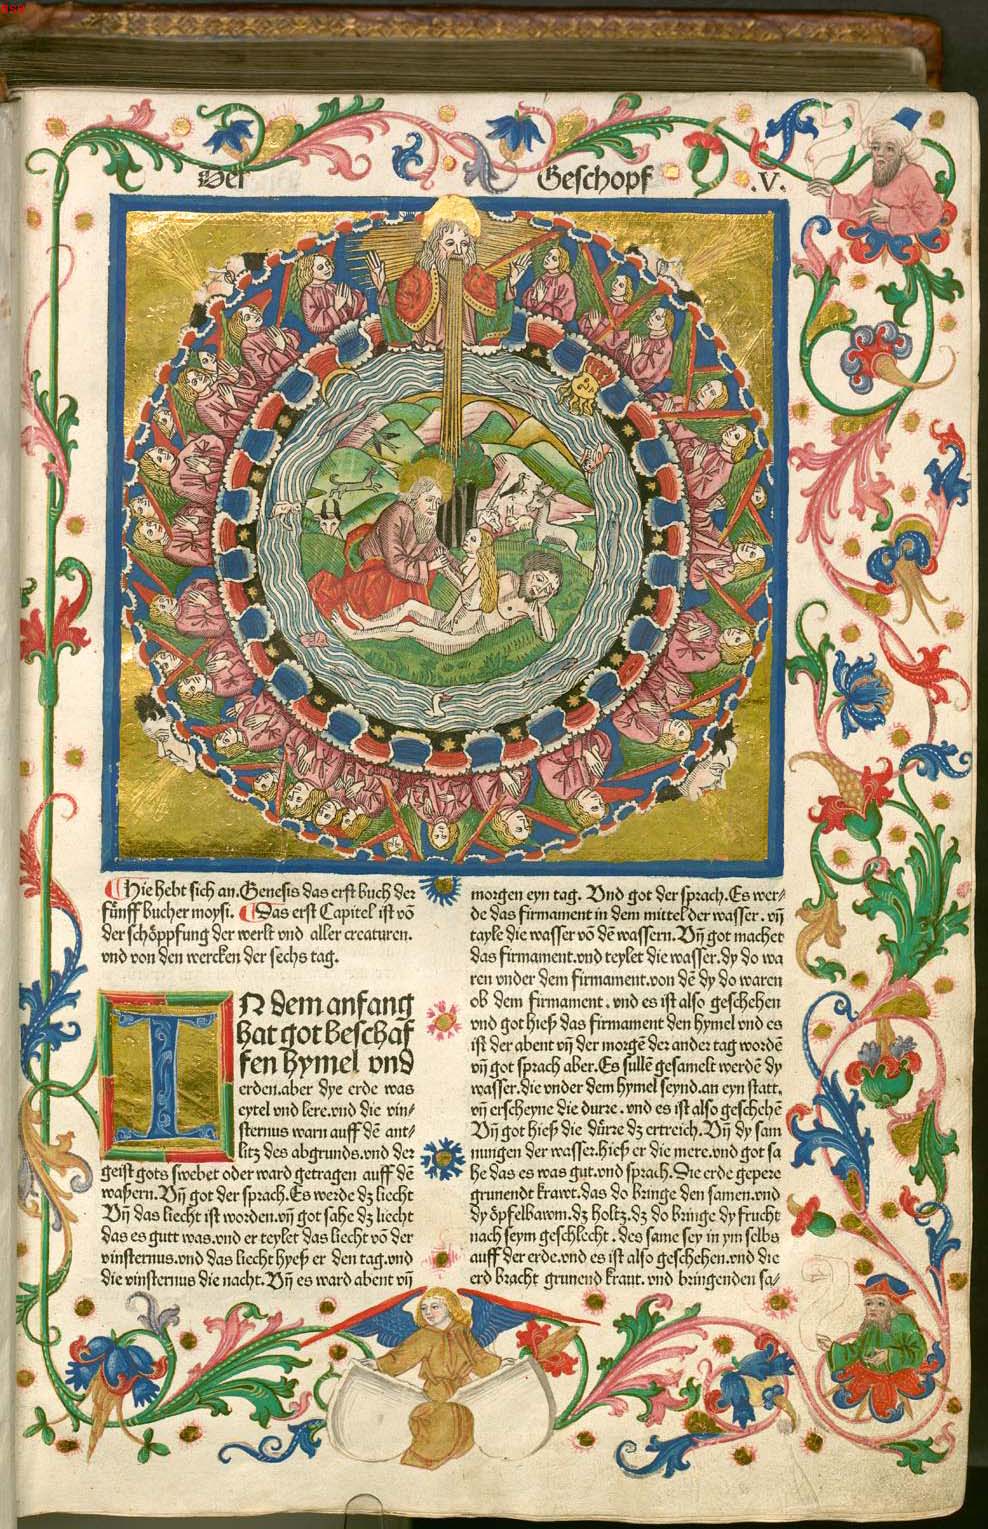 Der Geschopf .V.
Hie hebt sich an. Genesis das erst buch der
fünff bucher moysi. Das erst Capitel ist võ
der schöppfung der werlt vnd aller creaturen.
vnd von den wercken der sechs tag.
IN dem anfang
hat got beschaf
fen hymel vnd
erden. aber dye erde was
eytel vnd lere. vnd die vin⸗
sternus warn auff dẽ ant⸗
litz des abgrunds. vnd der
geist gots swebet oder ward getragen auff dẽ
wassern. Vñ got der sprach. Es werde dz liecht
Vñ das liecht ist worden. vñ got sahe dz liecht
das es gutt was. vnd er teylet das liecht võ der
vinsternus. vnd das liecht hyeß er den tag. vnd
die vinsternus die nacht. Vñ es ward abent vñ
morgen eyn tag. Vnd got der sprach. Es wer⸗
de das firmament in dem mittel der wasser. vñ
tayle die wasser võ dẽ wassern. Vñ got machet
das firmament. vnd teylet die wasser. dy do wa
ren vnder dem firmament. von dẽ dy do waren
ob dem firmament. vnd es ist also geschehen
vnd got hieß das firmament den hymel vnd es
ist der abent vñ der morgẽ der ander tag wordẽ
vñ got sprach aber. Es sullẽ gesamelt werdẽ dy
wasser. die vnder dem hymel seynd. an eyn statt.
vñ erscheyne die durre. vnd es ist also geschehẽ
Vñ got hieß die dürre dz ertreich. Vñ dy sam
nungen der wasser. hieß er die mere. vnd got sa
he das es was gut. vnd sprach. Die erde gepere
grunendt krawt. das do bringe den samen. vnd
dy öpfelbawm. dz holtz. dz do bringe dy frucht
nach seym geschlecht. des same sey in ym selbs
auff der erde. vnd es ist also geschehen. vnd die
erd bracht grunend kraut. vnd bringenden sa⸗